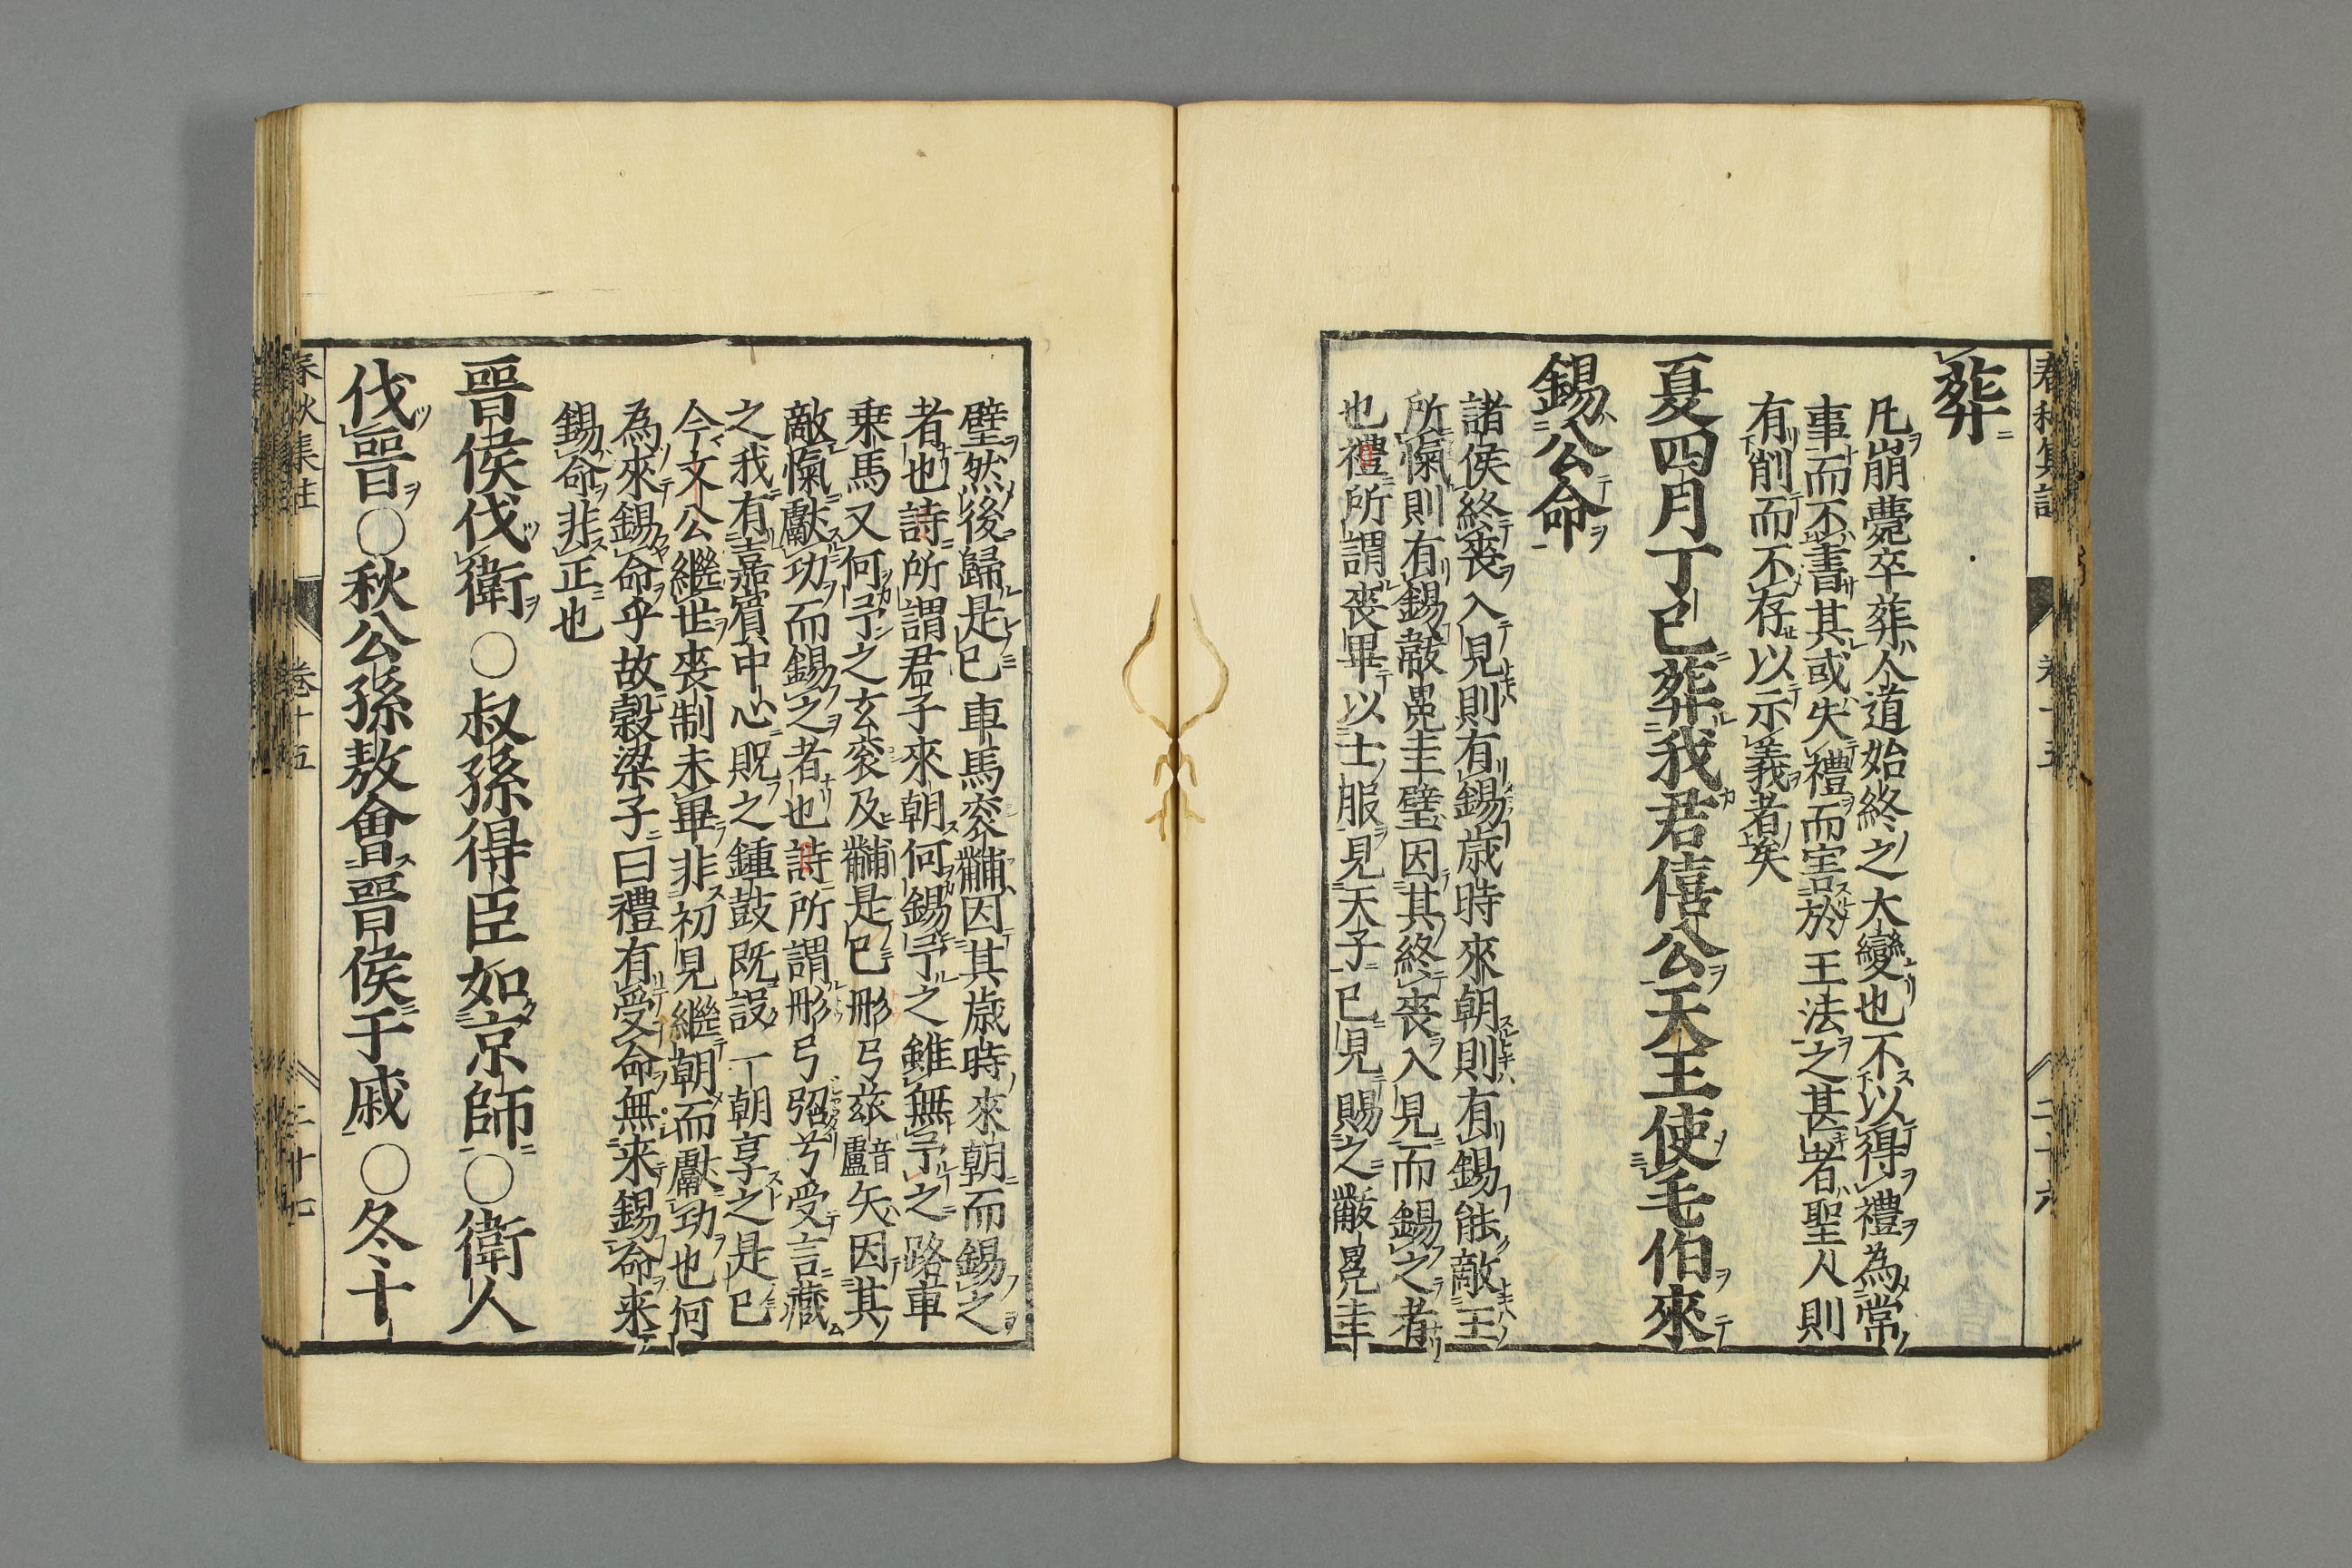 葬
凡崩薨卒葬人道始終之大變也不以得禮為常
事而不書其或失禮而害於王法之甚者聖人則
有削而不存以示義者矣
夏四月丁巳葬我君僖公天王使毛伯來
錫公命
諸侯終喪入見則有錫歳時來朝則有錫能敵王
所愾則有錫黻冕圭璧因其終喪入見而錫之者
也禮所謂喪畢以士服見天子已見賜之黻冕圭
璧然後歸是已車馬衮黼因其歳時來朝而錫之
者也詩所謂君子來朝何錫予之雖無予之路車
乗馬又何予之玄衮及黼是已彤弓玈音盧矢因其
敵愾獻功而錫之者也詩所謂彤弓弨兮受言藏
之我有嘉賓中心貺之鍾鼓既設一朝享之是已
今文公繼世喪制未畢非初見繼朝而獻功也何
為來錫命乎故穀梁子曰禮有受命無来錫命来
錫命非正也
晉侯伐衛○叔孫得臣如京師○衛人
伐晉○秋公孫敖會晉侯于戚○冬十
春秋集註 巻十五